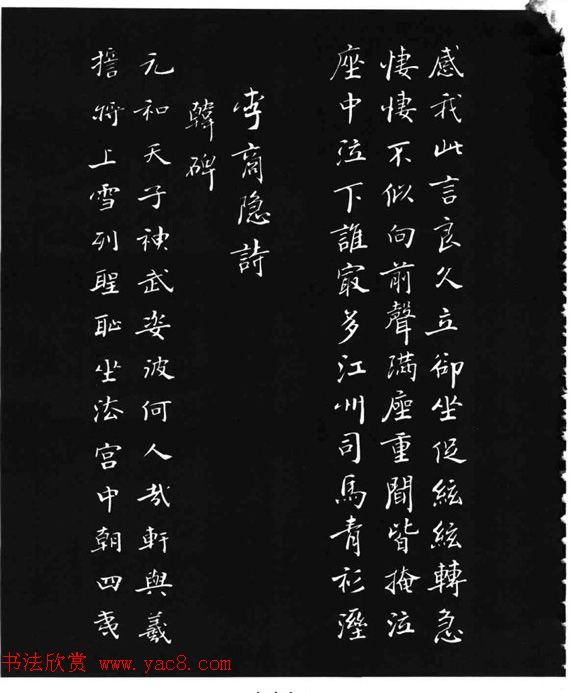 感我此言良久立卻坐促絃絃轉急
悽悽不似向前聲滿座重聞皆掩泣
座中泣下誰㝡多江州司馬青衫溼
李商隐詩
韓碑
元和天子神武姿彼何人哉軒與羲
誓將上雪列聖恥坐法宮中朝四夷
书法欣赏 www.yac8.com